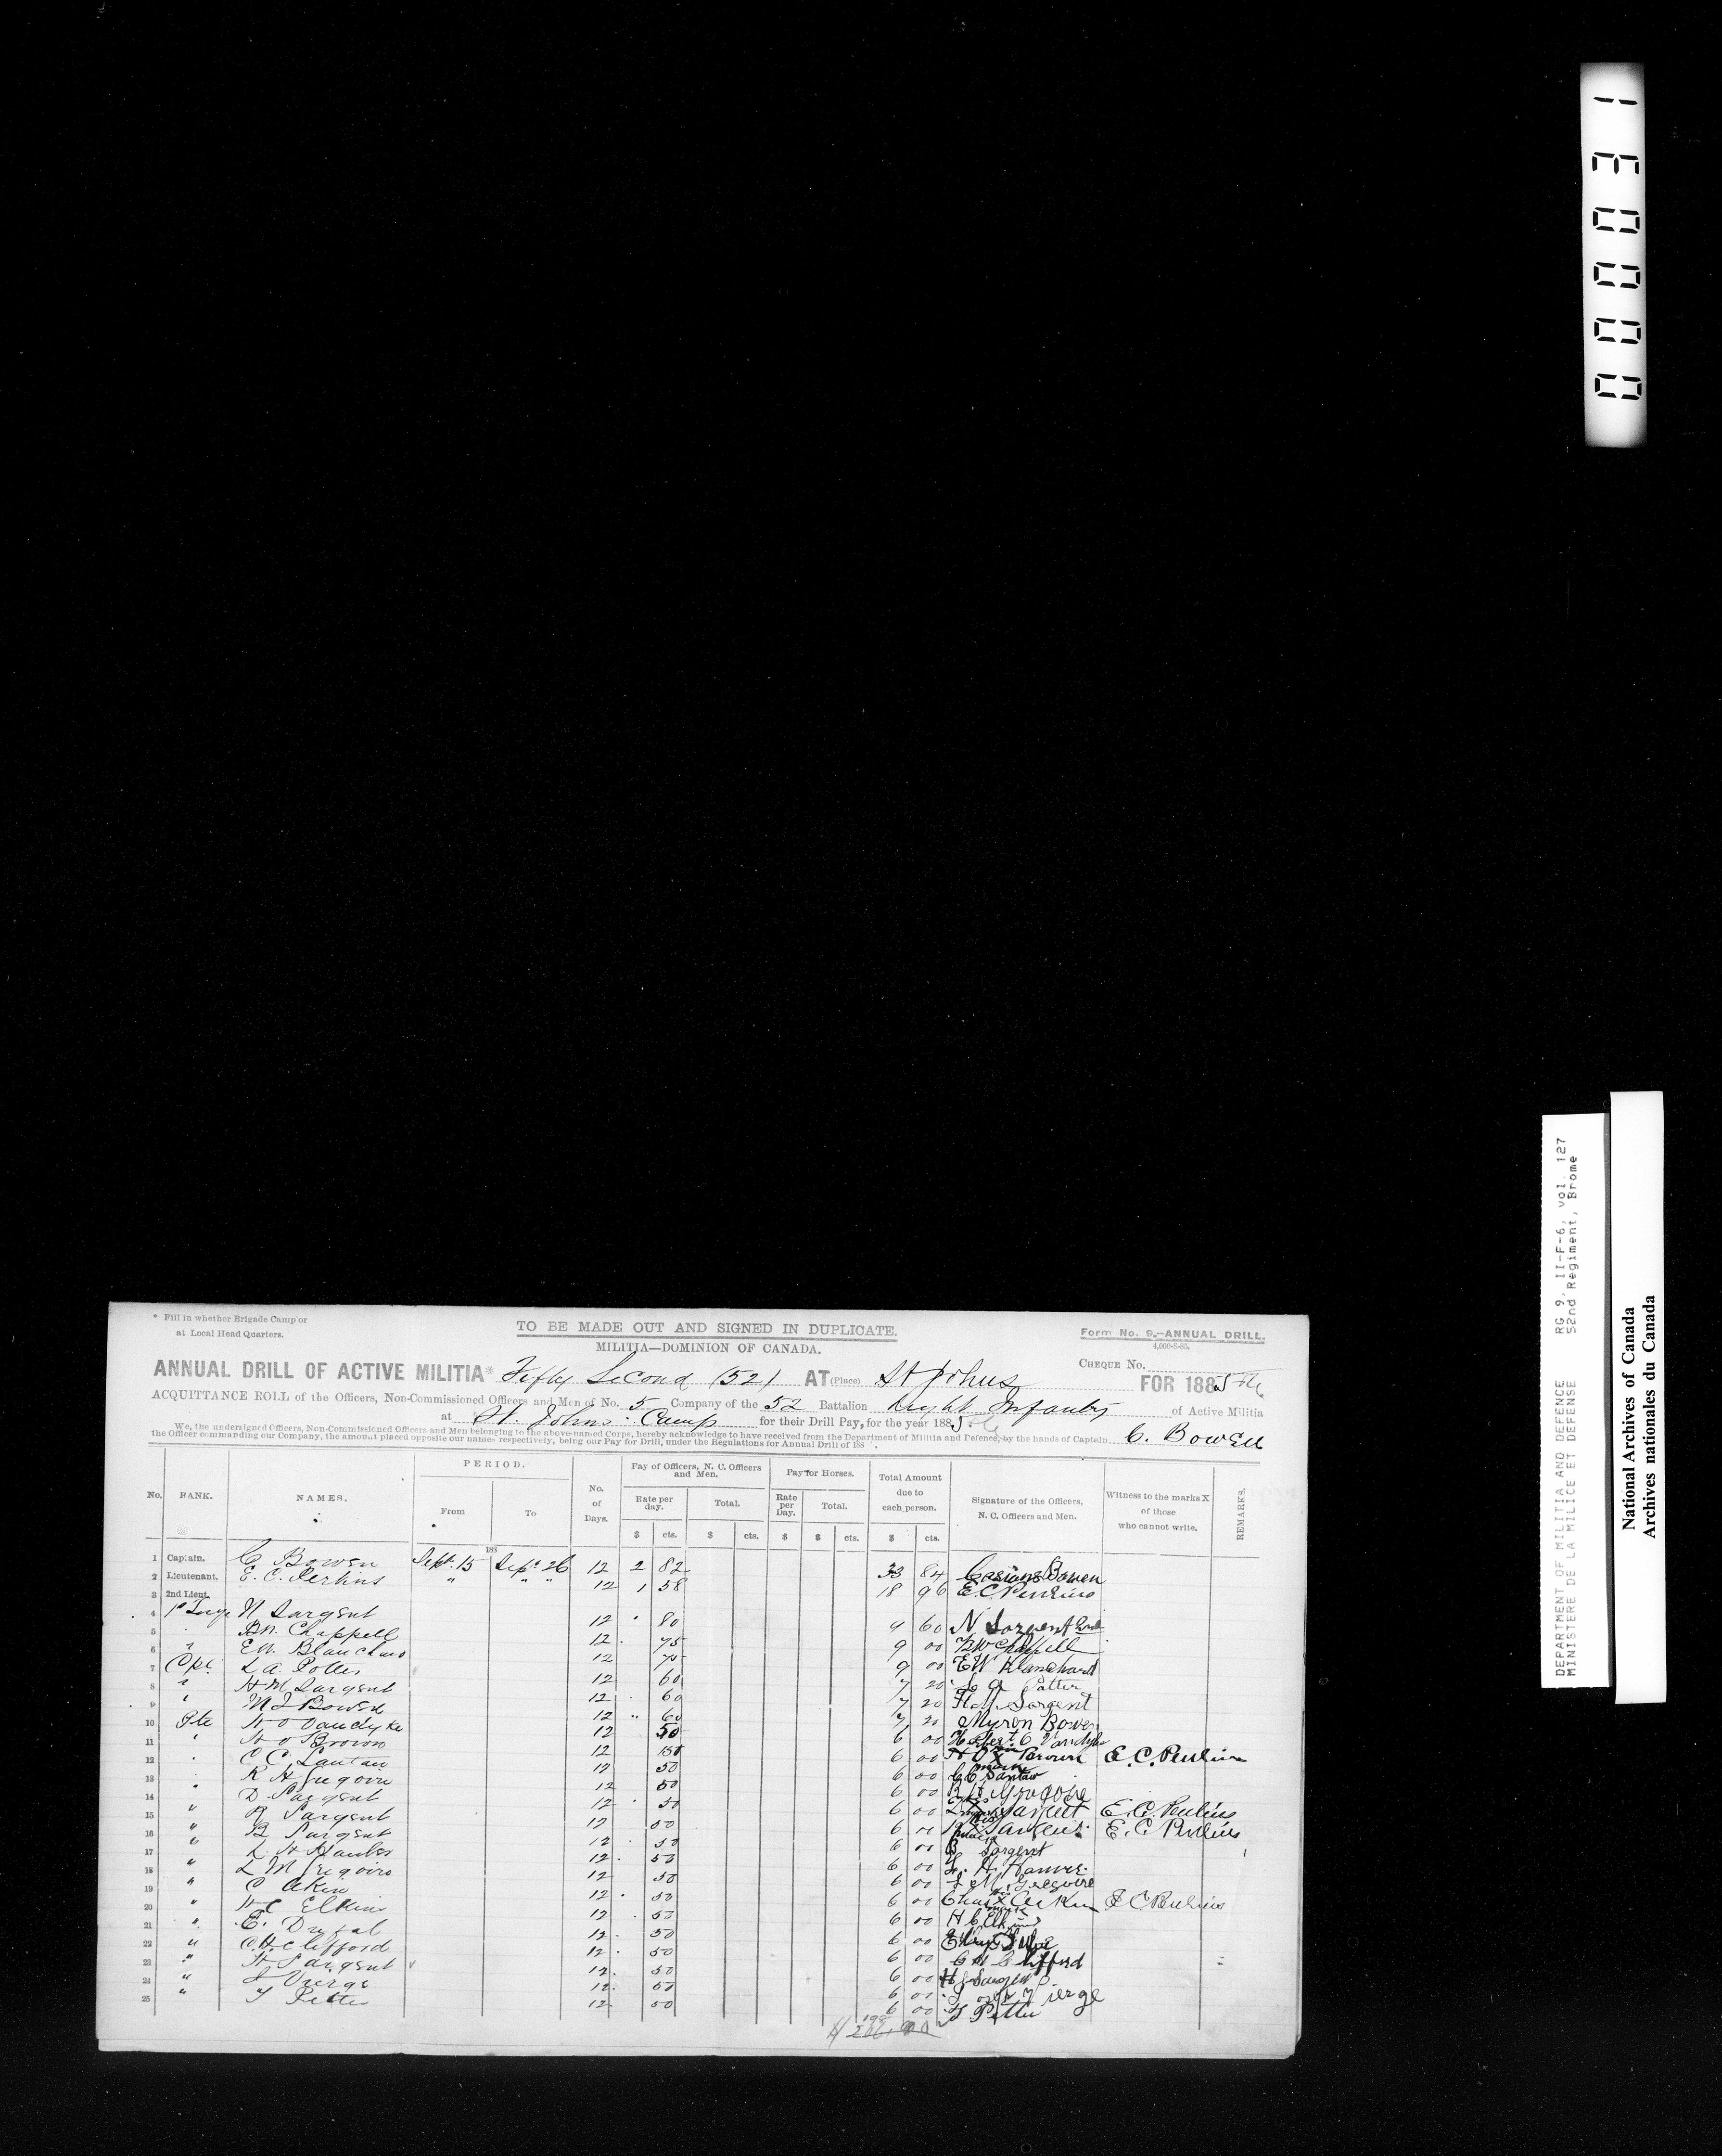 * Fill in whether Brigade Camp or
at Local Head Quarters.
TO BE MADE OUT AND SIGNED IN DUPLICATE.
Form No. 9.—ANNUAL DRILL.
MILITIA—DOMINION OF CANADA.
CHEQUE No.
ANNUAL DRILL OF ACTIVE MILITIA* Fifty Second (52) AT (Place) St Johns FOR 1885
ACQUITTANCE ROLL of the Officers, Non-Commissioned Officers and Men of No. 5 Company of the 52 Battalion Light Infantry of Active Militia
at St. Johns Camp for their Drill Pay, for the year 1885
We, the undersigned Officers, Non-Commissioned Officers and Men belonging to the above-named Corps, hereby acknowledge to have received from the Department of Militia and Defence, by the hands of Captain C. Bowen
the Officer commanding our Company, the amount placed opposite our names respectively, being our Pay for Drill, under the Regulations for Annual Drill of 188 .
No. RANK. NAMES. PERIOD. From To No. of Days. Pay of Officers, N. C. Officers and Men. Rate per day. Total. Pay for Horses. Rate per Day. Total. Total Amount due to each person. Signature of the Officers, N. C. Officers and Men. Witness to the marks X of those who cannot write. REMARKS.
$ cts. $ cts. $ $ cts. $ cts.
188
1 Captain. C Bowen Sept. 15 Sept. 26 12 2 82 33 84 Bowen
2 Lieutenant. E. C. Perkins " " " 12 1 58 18 96 E. C. Perkins
3 2nd Lieut.
4 N Sargent 12 80 9 60 N Sargent
5 Chappell 12 75 9 00 Chappell
6 " E W Blanchard 12 75 9 00 E W Blanchard
7 Cpl L A Potter 12 60 7 20 L A Potter
8 " H M Sargent 12 60 7 20 H M Sargent
9 " M J Bowen 12 " 60 7 20 Myron Bowen
10 Pte H O Vandyke 12 50 6 00 O Vandyke
11 " H O Brown 12 50 6 00 H O X Brown E. C. Perkins
12 C C Santaw 12 50 6 00 C C Santaw
13 R H Gregoire 12 50 6 00 R H Gregoire
14 " D Sargent 12 50 6 00 X Sargent E. C. Perkins
15 " R Sargent 12 50 6 00 R X Sargent E. C. Perkins
16 " B Sargent 12 50 6 00 B Sargent
17 " L H 12 50 6 00 L. H.
18 " L M Gregoire 12 50 6 00 L M Gregoire
19 " C Aken 12 50 6 00 Chas X Aiken E C Perkins
20 " H C Elkins 12 50 6 00 H C Elkins
21 " E. 12 50 6 00
22 " C H Clifford 12 50 6 00 C H Clifford
23 " H Sargent 12 50 6 00 H J Sargent
24 " Vierge 12 50 6 00 Vierge
25 " 12 50 6 00
000031
DEPARTMENT OF MILITIA AND DEFENCE RG 9, II-F-6, vol. 127
MINISTERE DE LA MILICE ET DEFENSE 52nd Regiment, Brome
National Archives of Canada
Archives nationales du Canada